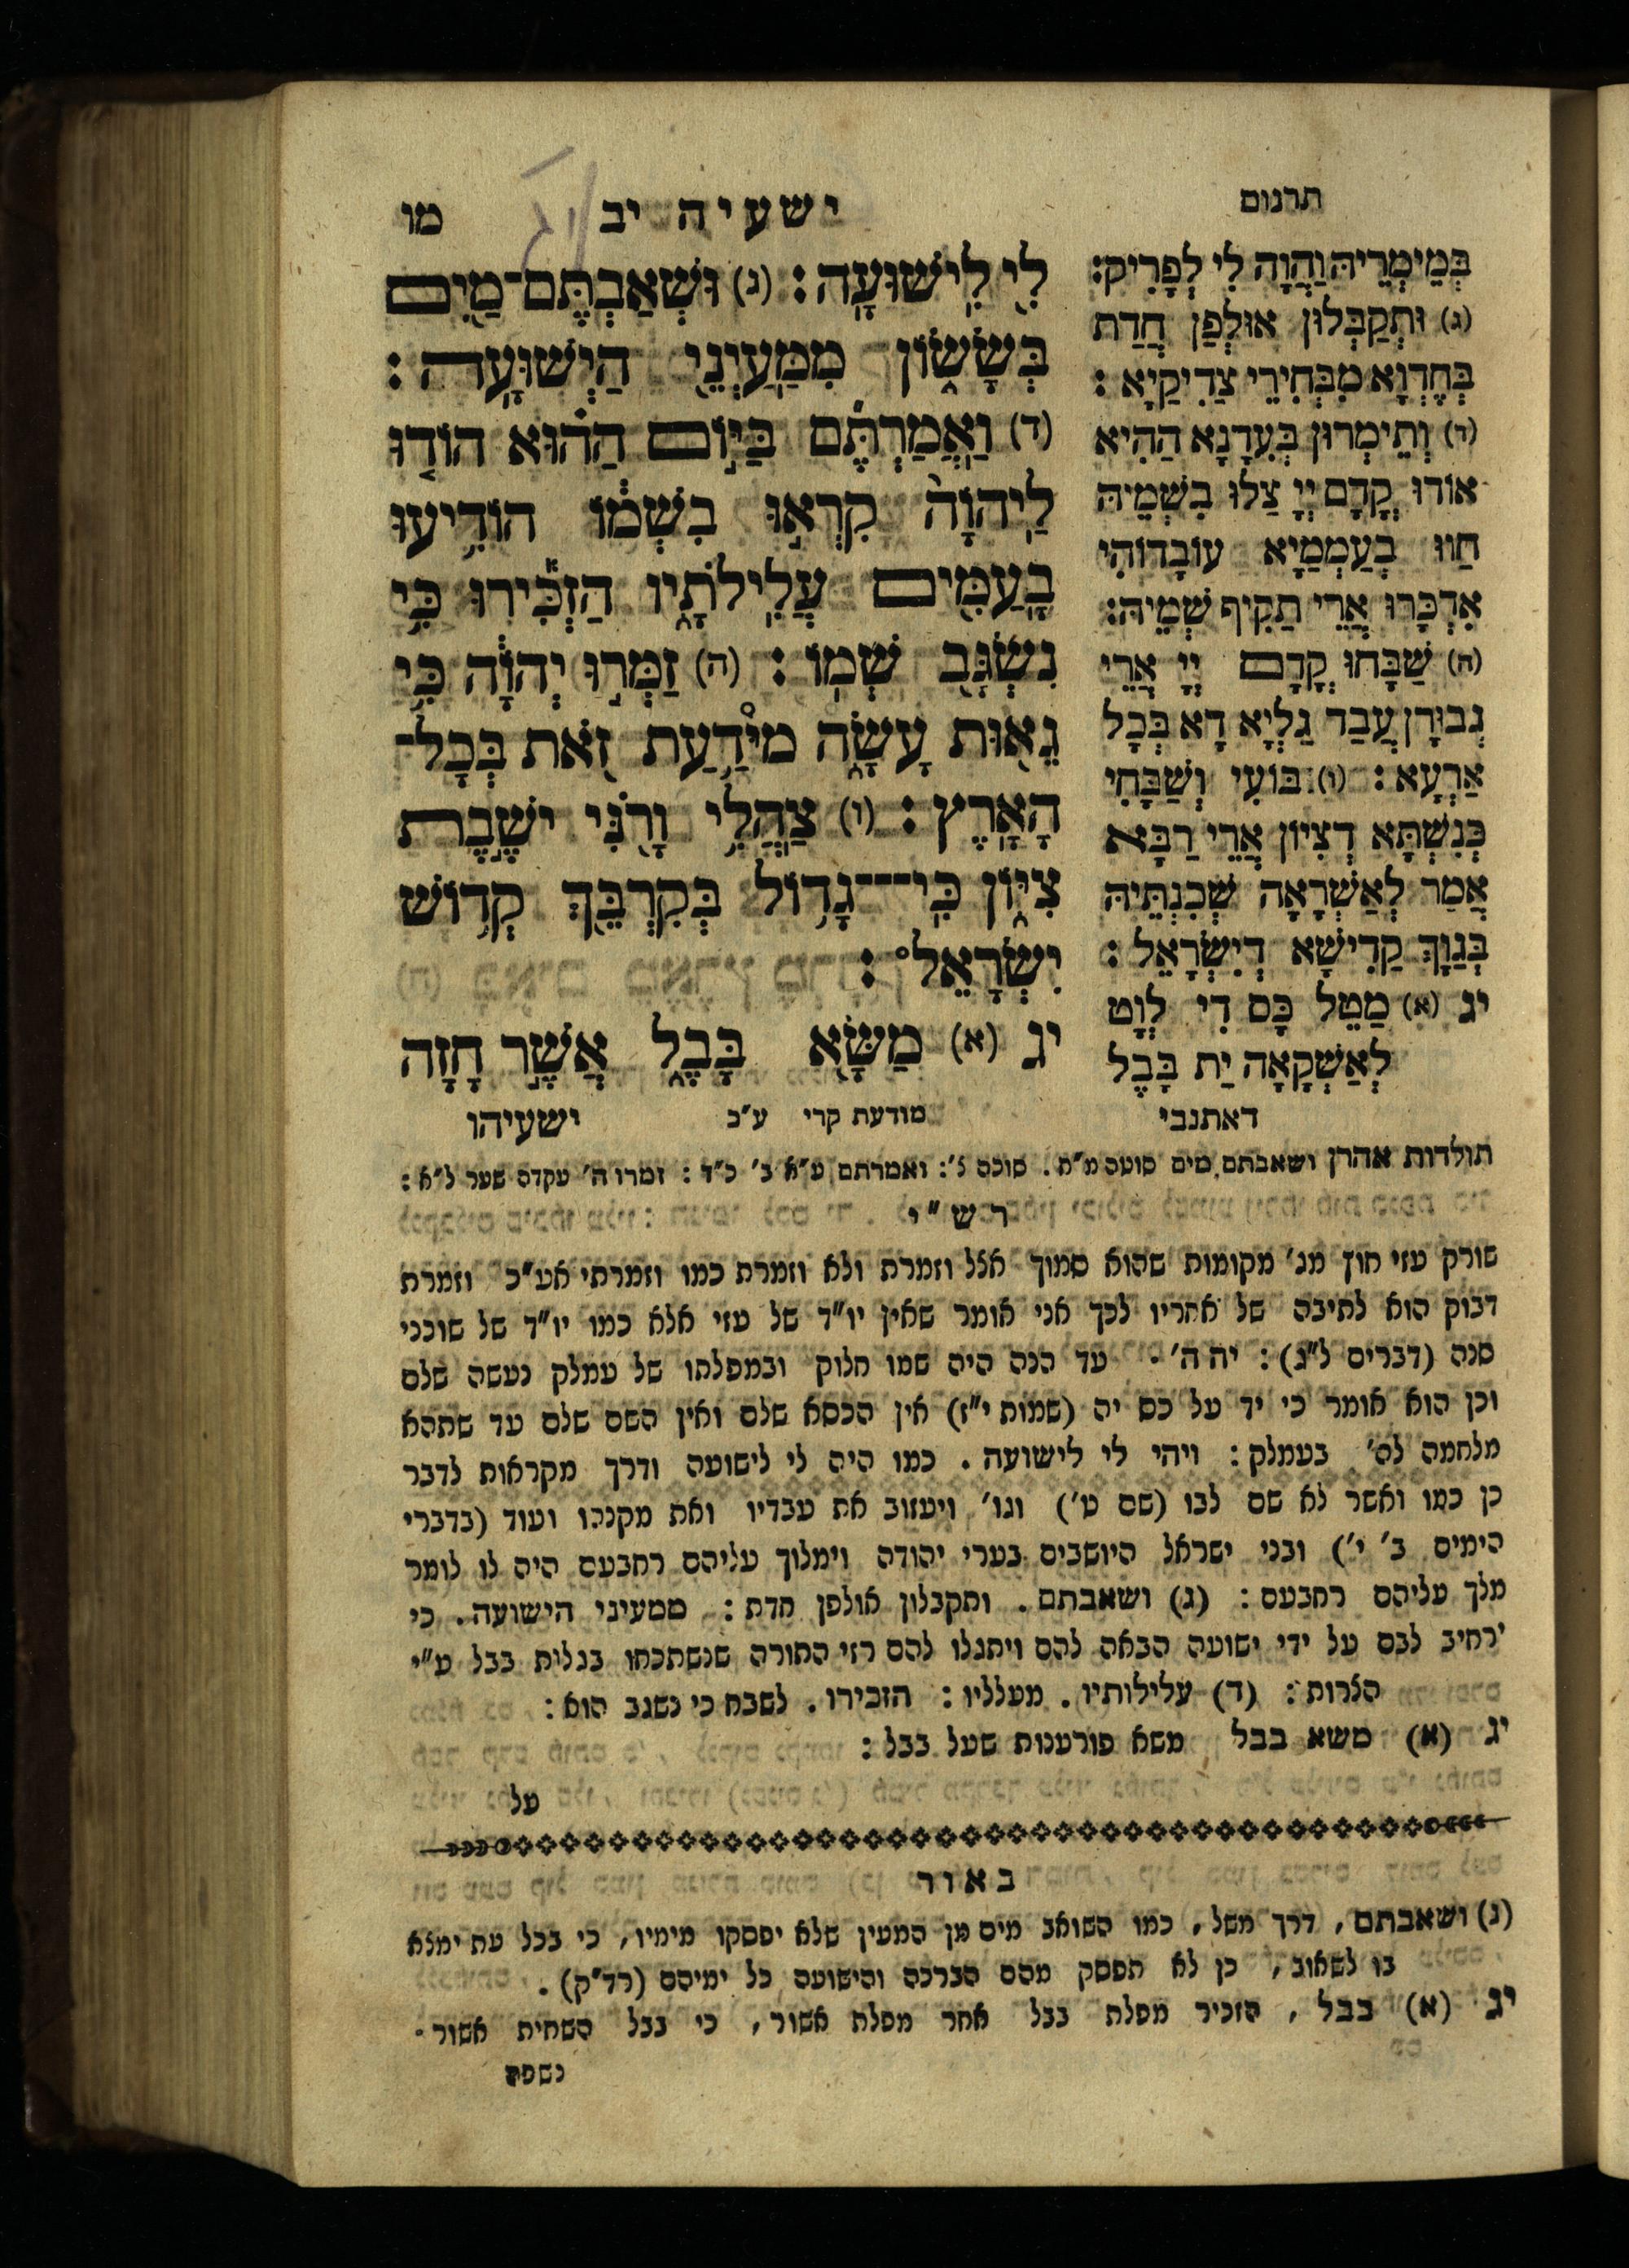 תרגום
ישעיה יב
מו
בְּמֵימְרֵיהּ וַהֲוָה לִי לְפָרִיק:
(ג) וּתְקַבְּלוּן אוּלְפַן חֲדַת
בְּחֶדְוָא מִבְּחִירֵי צַדִיקַיָא:
(ד) וְתֵימְרוּן בְּעִדָנָא הַהִיא
אוֹדוּ קֳדָם יְיָ צַלוּ בִשְׁמֵיהּ
חַווּ בְעַמְמַיָא עוֹבָדוֹהִי
אִדְכָּרוּ אֲרֵי תַקִיף שְׁמֵיהּ:
(ה) שַׁבָּחוּ קֳדָם יְיָ אֲרֵי
גְבוּרָן עֲבַד גַלְיָא דָא בְּכָל
אַרְעָא: (ו) בּוּעִי וְשַׁבָּחִי
כְּנִשְׁתָּא דְצִיוֹן אֲרֵי רַבָּא
אֲמַר לְאַשְׁרָאָה שְׁכִנְתֵּיהּ
בְּגַוָךְ קַדִישָׁא דְיִשְׂרָאֵל:
יג (א) מַטַל כָּס דִי לְוָט
לְאַשְׁקָאָה יַת בָּבֶל
דאתנבי
לִ֖י לִֽישׁוּעָֽה: (ג) וּשְׁאַבְתֶּם־מַ֖יִם
בְּשָׂשׂ֑וֹן מִמַּֽעַיְנֵ֖י הַיְשׁוּעָֽה:
(ד) וַֽאֲמַרְתֶּ֞ם בַּיּ֣וֹם הַה֗וּא הוֹד֤וּ
לַֽיהוָֹה֙ קִרְא֣וּ בִשְׁמ֔וֹ הוֹדִ֥יעוּ
בָֽעַמִּ֖ים עֲלִֽילֹתָ֑יו הַזְכִּ֕ירוּ כִּ֥י
נִשְׂגָּ֖ב שְׁמֽוֹ: (ה) זַמְּר֣וּ יְהוָֹ֔ה כִּ֥י
גֵא֖וּת עָשָׂ֑ה מיֻּדַ֥עַת זֹ֖את בְּכָל־
הָאָֽרֶץ: (ו) צַֽהֲלִ֥י וָרֹ֖נִּי יֹשֶׁ֣בֶת
צִיּ֑וֹן כִּֽי־גָד֥וֹל בְּקִרְבֵּ֖ךְ קְד֥וֹשׁ
יִשְׂרָאֵֽל:
יג (א) מַשָּׂ֖א בָּבֶ֑ל אֲשֶׁ֣ר חָזָ֔ה
מודעת קרי ע״כ
ישעיהו
תולדות אהרן ושאבתם מים סוטה מ״ח. סוכה נ׳: ואמרתם ע״א ב׳ כ״ד: זמרו ה׳ עקדה שער ל״א:
רש״י
שורק עזי חוץ מג׳ מקומות שהוא סמוך אצל וזמרת ולא וזמרת כמו וזמרתי אע״כ וזמרת
דבוק הוא לתיבה של אחריו לכך אני אומר שאין יו״ד של עזי אלא כמו יו״ד של שוכני
סנה (דברים ל״ג): יה ה׳. עד הנה היה שמו חלוק ובמפלתו של עמלק נעשה שלם
וכן הוא אומר כי יד על כס יה (שמות י״ז) אין הכסא שלם ואין השם שלם עד שתהא
מלחמה לה׳ בעמלק: ויהי לי לישועה. כמו היה לי לישועה ודרך מקראות לדבר
כן כמו ואשר לא שם לבו (שם ט׳) וגו׳ ויעזוב את עבדיו ואת מקנהו ועוד (בדברי
הימים ב׳ י׳) ובני ישראל היושבים בערי יהודה וימלוך עליהם רחבעם היה לו לומר
מלך עליהם רחבעם: (ג) ושאבתם. ותקבלון אולפן חדת: ממעיני הישועה. כי
ירחיב לבם על ידי ישועה הבאה להם ויתגלו להם רזי התורה שנשתכחו בגלות בבל ע״י
הצרות: (ד) עלילותיו. מעלליו: הזכירו. לשבח כי נשגב הוא:
יג (א) משא בבל משא פורענות שעל בבל:
על
באור
(ג) ושאבתם, דרך משל, כמו השואב מים מן המעין שלא יפסקו מימיו, כי בכל עת ימלא
בו לשאוב, כן לא תפסק מהם הברכה והישועה כל ימיהם (רד״ק).
יג (א) בבל, הזכיר מפלת בבל אחר מפלת אשור, כי בבל השחית אשור.
נשפה